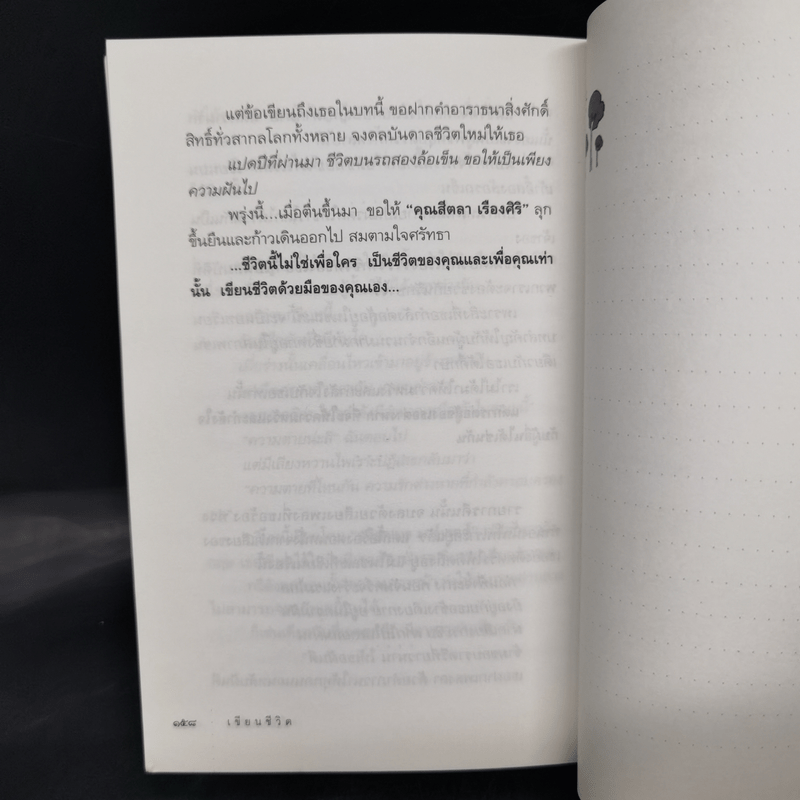 แต่ข้อเขียนถึงเธอในบทนี้ ขอฝากคำอาราธนาสิ่งศักดิ์
สิทธิ์ทั่วสากลโลกทั้งหลาย จงดลบันดาลชีวิตใหม่ให้เธอ
แปดปีที่ผ่านมา ชีวิตบนรถสองล้อเข็น ขอให้เป็นเพียง
ความฝันไป
พรุ่งนี้...เมื่อตื่นขึ้นมา ขอให้ “คุณสีตลา เรืองศิริ” ลุก
ขึ้นยืนและก้าวเดินออกไป สมตามใจศรัทธา
...ชีวิตนี้ไม่ใช่เพื่อใคร เป็นชีวิตของคุณและเพื่อคุณเท่า
นั้น เขียนชีวิตด้วยมือของคุณเอง...
๑๕๘ เขียนชีวิต